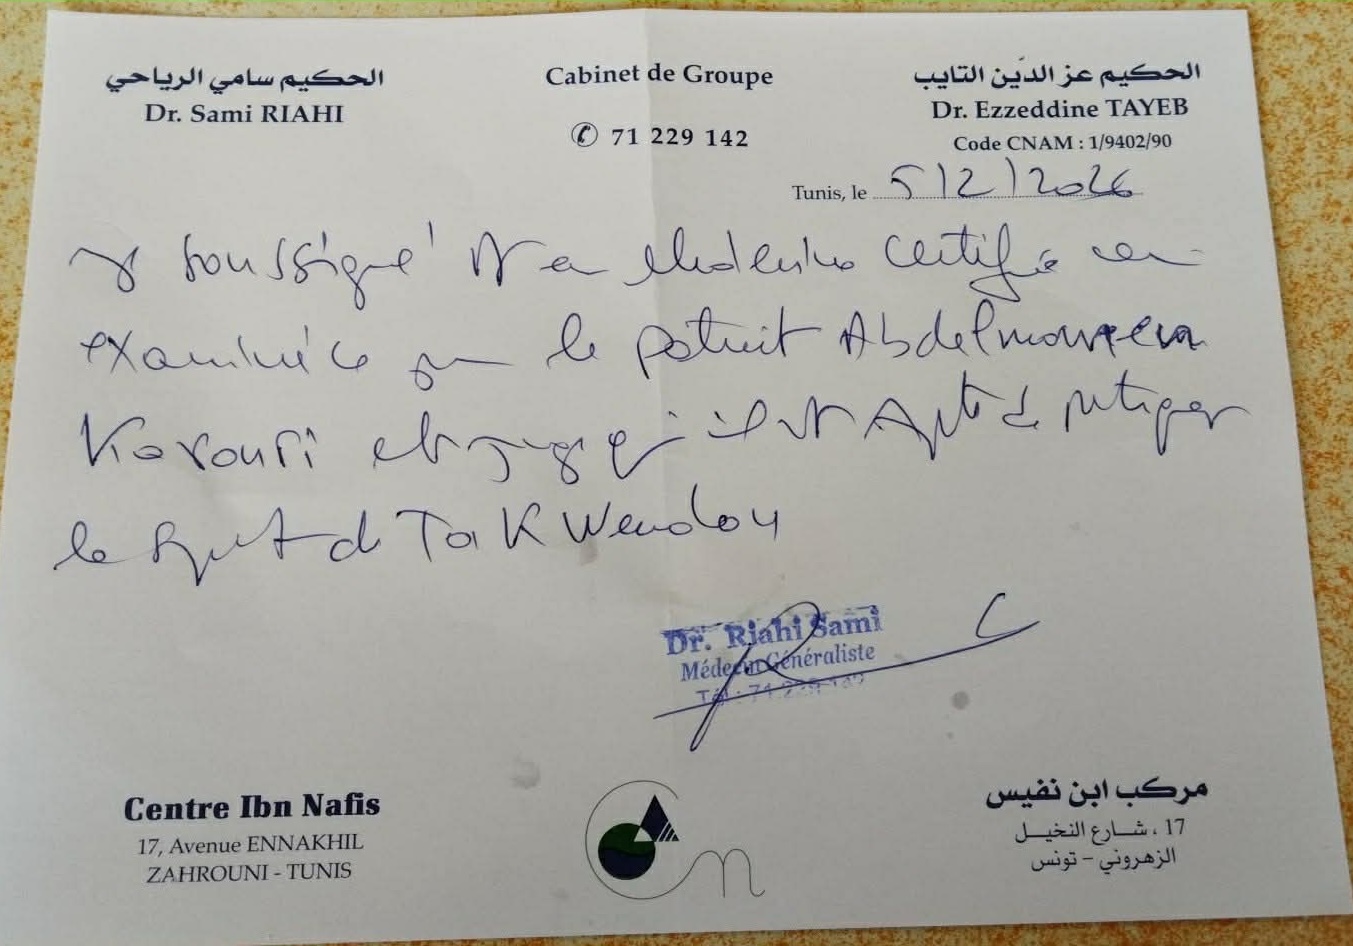 الحكيم سامي الرياحي
Dr. Sami RIAHI
Cabinet de Groupe
✆ 71 229 142
الحكيم عز الدّين التايب
Dr. Ezzeddine TAYEB
Code CNAM : 1/9402/90
Tunis, le 5/2/2026
Je soussigné Dr en Médecine certifie
examiné ce le patient Abdelmonem
Karouri et qu'il est Apte à pratiquer
le sport de TaKWendou
Dr. Riahi Sami
Médecin Généraliste
Tél : 71 229 142
Centre Ibn Nafis
17, Avenue ENNAKHIL
ZAHROUNI - TUNIS
مركب ابن نفيس
17 ، شارع النخيل
الزهروني - تونس